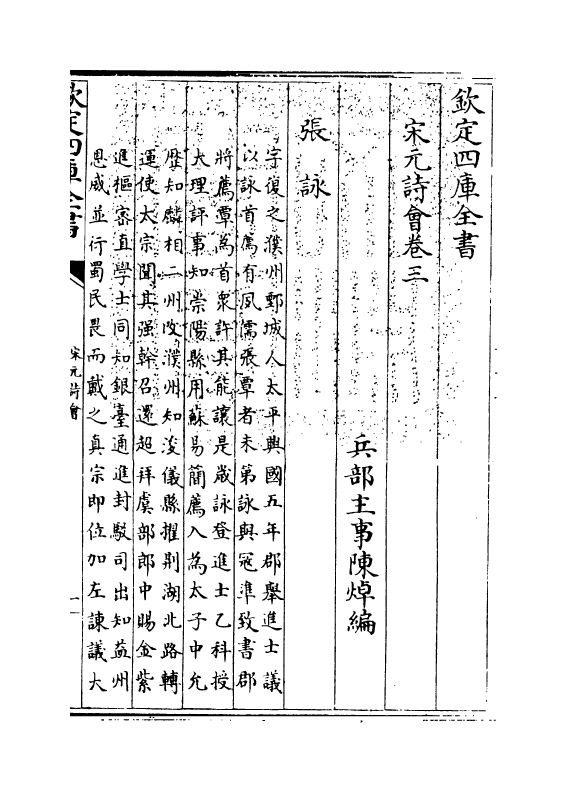 欽定四庫全書
宋元詩會卷三
兵部主事陳焯編
張詠
字復之濮州鄄城人太平興國五年郡舉進士議
以詠首薦有夙儒張覃者未第詠與冦準致書郡
將薦覃為首衆許其能讓是歲詠登進士乙科授
大理評事知崇陽縣用蘇易簡薦入為太子中允
歴知麟相二州改濮州知浚儀縣擢荆湖北路轉
運使太宗聞其强幹召還超拜虞部郎中賜金紫
進樞密直學士同知銀臺通進封駁司出知益州
恩威並行蜀民畏而戴之真宗即位加左諫議大
欽定四庫全書
宋元詩會
一